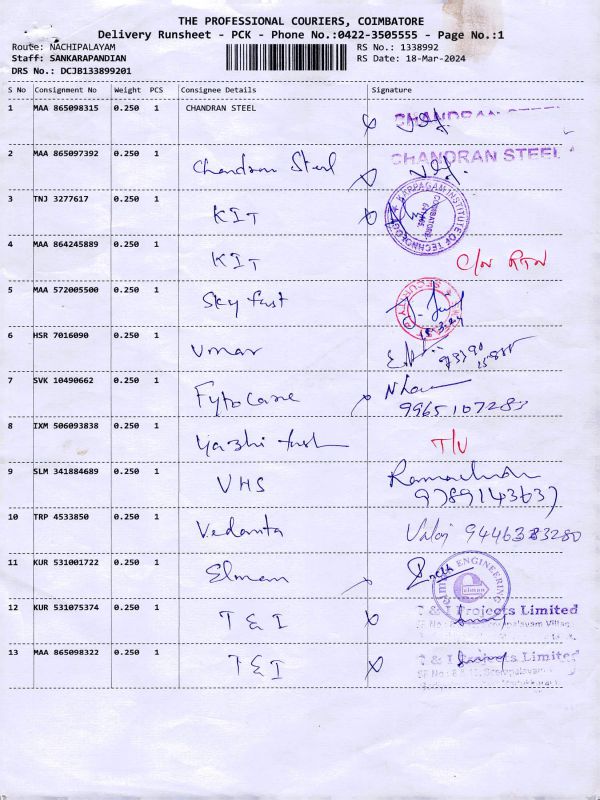 THE PROFESSIONAL COURIERS, COIMBATORE
Delivery Runsheet - PCK - Phone No.:0422-3505555 - Page No.:1
Route: NACHIPALAYAM RS No.: 1338992
Staff: SANKARAPANDIAN RS Date: 18-Mar-2024
DRS No.: DCJB133899201
S No Consignment No Weight PCS Consignee Details Signature
1 MAA 865098315 0.250 1 CHANDRAN STEEL CHANDRAN STEEL
2 MAA 865097392 0.250 1 Chandran Steel CHANDRAN STEEL
3 TNJ 3277617 0.250 1 KIT KARPAGAM INSTITUTE OF TECHNOLOGY
4 MAA 864245889 0.250 1 KIT C/N RTN
5 MAA 572005500 0.250 1 Sky fast SECURITY
6 HSR 7016090 0.250 1 Umar
7 SVK 10490662 0.250 1 Fytocare
9965107283
8 IXM 506093838 0.250 1 Yazhi tash T/U
9 SLM 341884689 0.250 1 VHS
9789143637
10 TRP 4533850 0.250 1 Vedanta 9446383280
11 KUR 531001722 0.250 1 Elman ENGINEERING elman
12 KUR 531075374 0.250 1 T & I T & I Projects Limited
13 MAA 865098322 0.250 1 T & I T & I Projects Limited